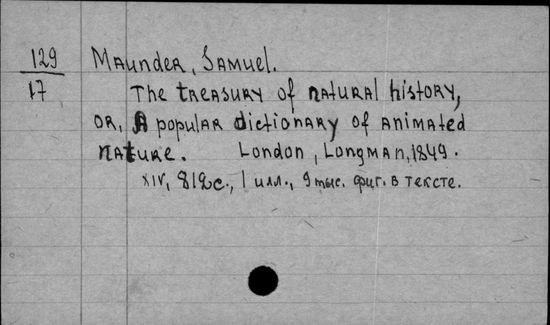 129 Maunder, Samuel.
17 The treasury of natural history,
or, A popular dictionary of animated
nature. London, Longman, 1849.
XIV, 812с., 1 илл., 9 тыс. фиг. в тексте.